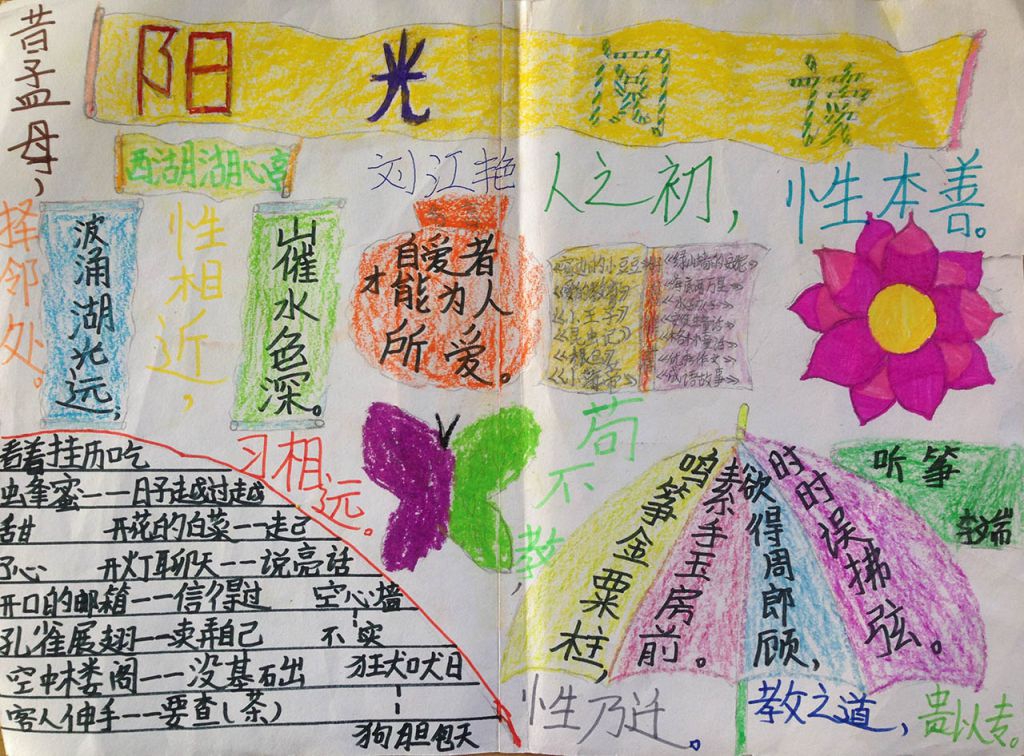 阳光阅读
昔孟母，
择邻处。
西湖湖心亭
刘江艳
人之初，
性本善。
波涌湖光远，
性相近，
山催水色深。
习相远。
自爱者
才能为人
所爱。
《窗边的小豆豆》
《爱的教育》
《小王子》
《昆虫记》
《水浒传》
《成语故事》
看着挂历吃
虫争蜜——日子越过越
甜 开花的白菜——走己
了心 开灯聊天——说亮话
开口的邮箱——信得过 空心墙
孔雀展翅——卖弄自己 不实
空中楼阁——没基石出 狂犬吠日
客人伸手——要查（茶）
狗胆包天
苟不教，
听筝
李端
鸣筝金粟柱，
素手玉房前。
欲得周郎顾，
时时误拂弦。
性乃迁。
教之道，
贵以专。